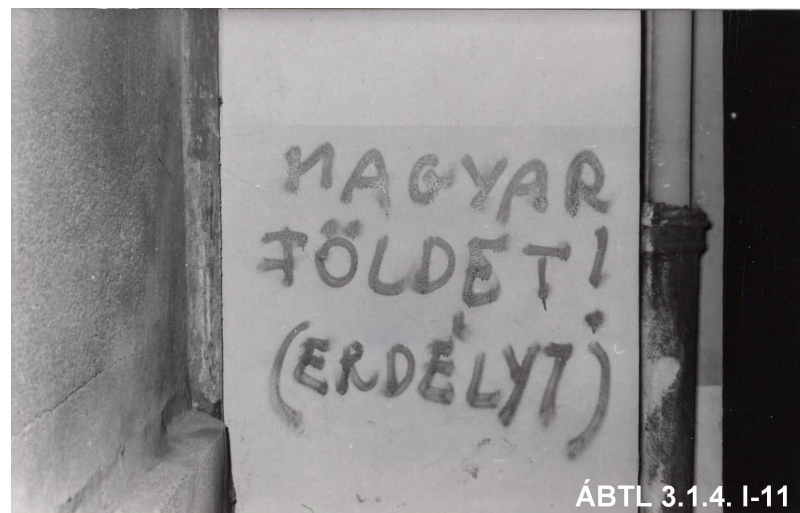 MAGYAR
FÖLDET!
(ERDÉLYT)
ÁBTL 3.1.4. I-11